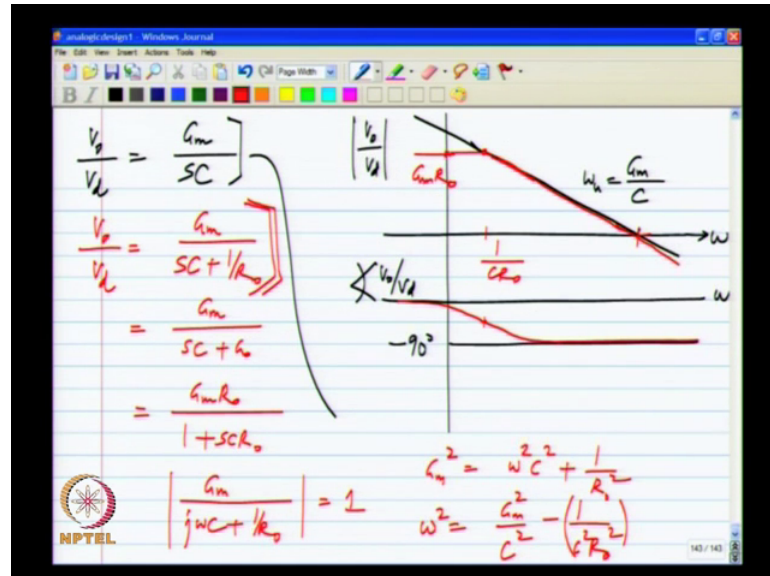 analogicdesign1 - Windows Journal
File Edit View Insert Actions Tools Help
Page Width
B I
V_o/V_d = G_m/SC
V_o/V_d = G_m/(SC + 1/R_o)
= G_m/(SC + G_o)
= G_m R_o/(1 + SCR_o)
|G_m/(jωC + 1/R_o)| = 1
|V_o/V_d|
G_m R_o
ω_u = G_m/C
ω
1/CR_o
∠V_o/V_d
ω
-90°
G_m^2 = ω^2 C^2 + 1/R_o^2
ω^2 = G_m^2/C^2 - (1/C^2 R_o^2)
NPTEL
143 / 143